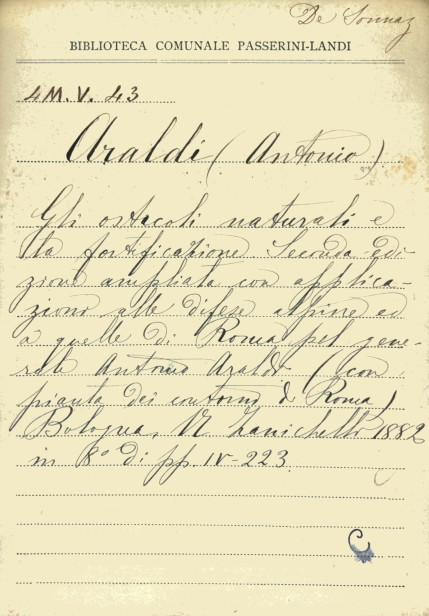 De Sonnaz
BIBLIOTECA COMUNALE PASSERINI-LANDI
4M.V.43
Araldi (Antonio)
Gli ostacoli naturali e
la fortificazione Seconda edi-
zione ampliata con applica-
zioni alle difese alpine ed
a quelle di Roma pel gene-
rale Antonio Araldi (con
pianta dei contorni di Roma)
Bologna, N. Zanichelli 1882
in 8° di pp. IV-223
C